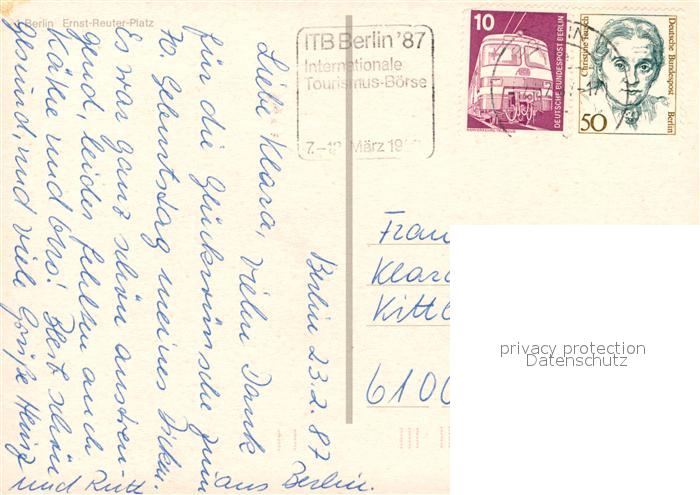 Berlin Ernst-Reuter-Platz
ITB Berlin '87
Internationale
Tourismus-Börse
7.-12. März 19
10
DEUTSCHE BUNDESPOST BERLIN
Christine Teusch
Deutsche Bundespost Berlin
50
Berlin 23.2.87
Liebe Klara, vielen Dank aus Berlin.
für die Glückwünsche zum
70. Geburtstag meines Dicken.
Es war ganz schön anstren-
gend, leider fehlten auch
Käthe und Otto! Bleib schön
gesund und viele Grüße Heinz
und Ruth
Frau
Klara
Kittl
6100
privacy protection
Datenschutz